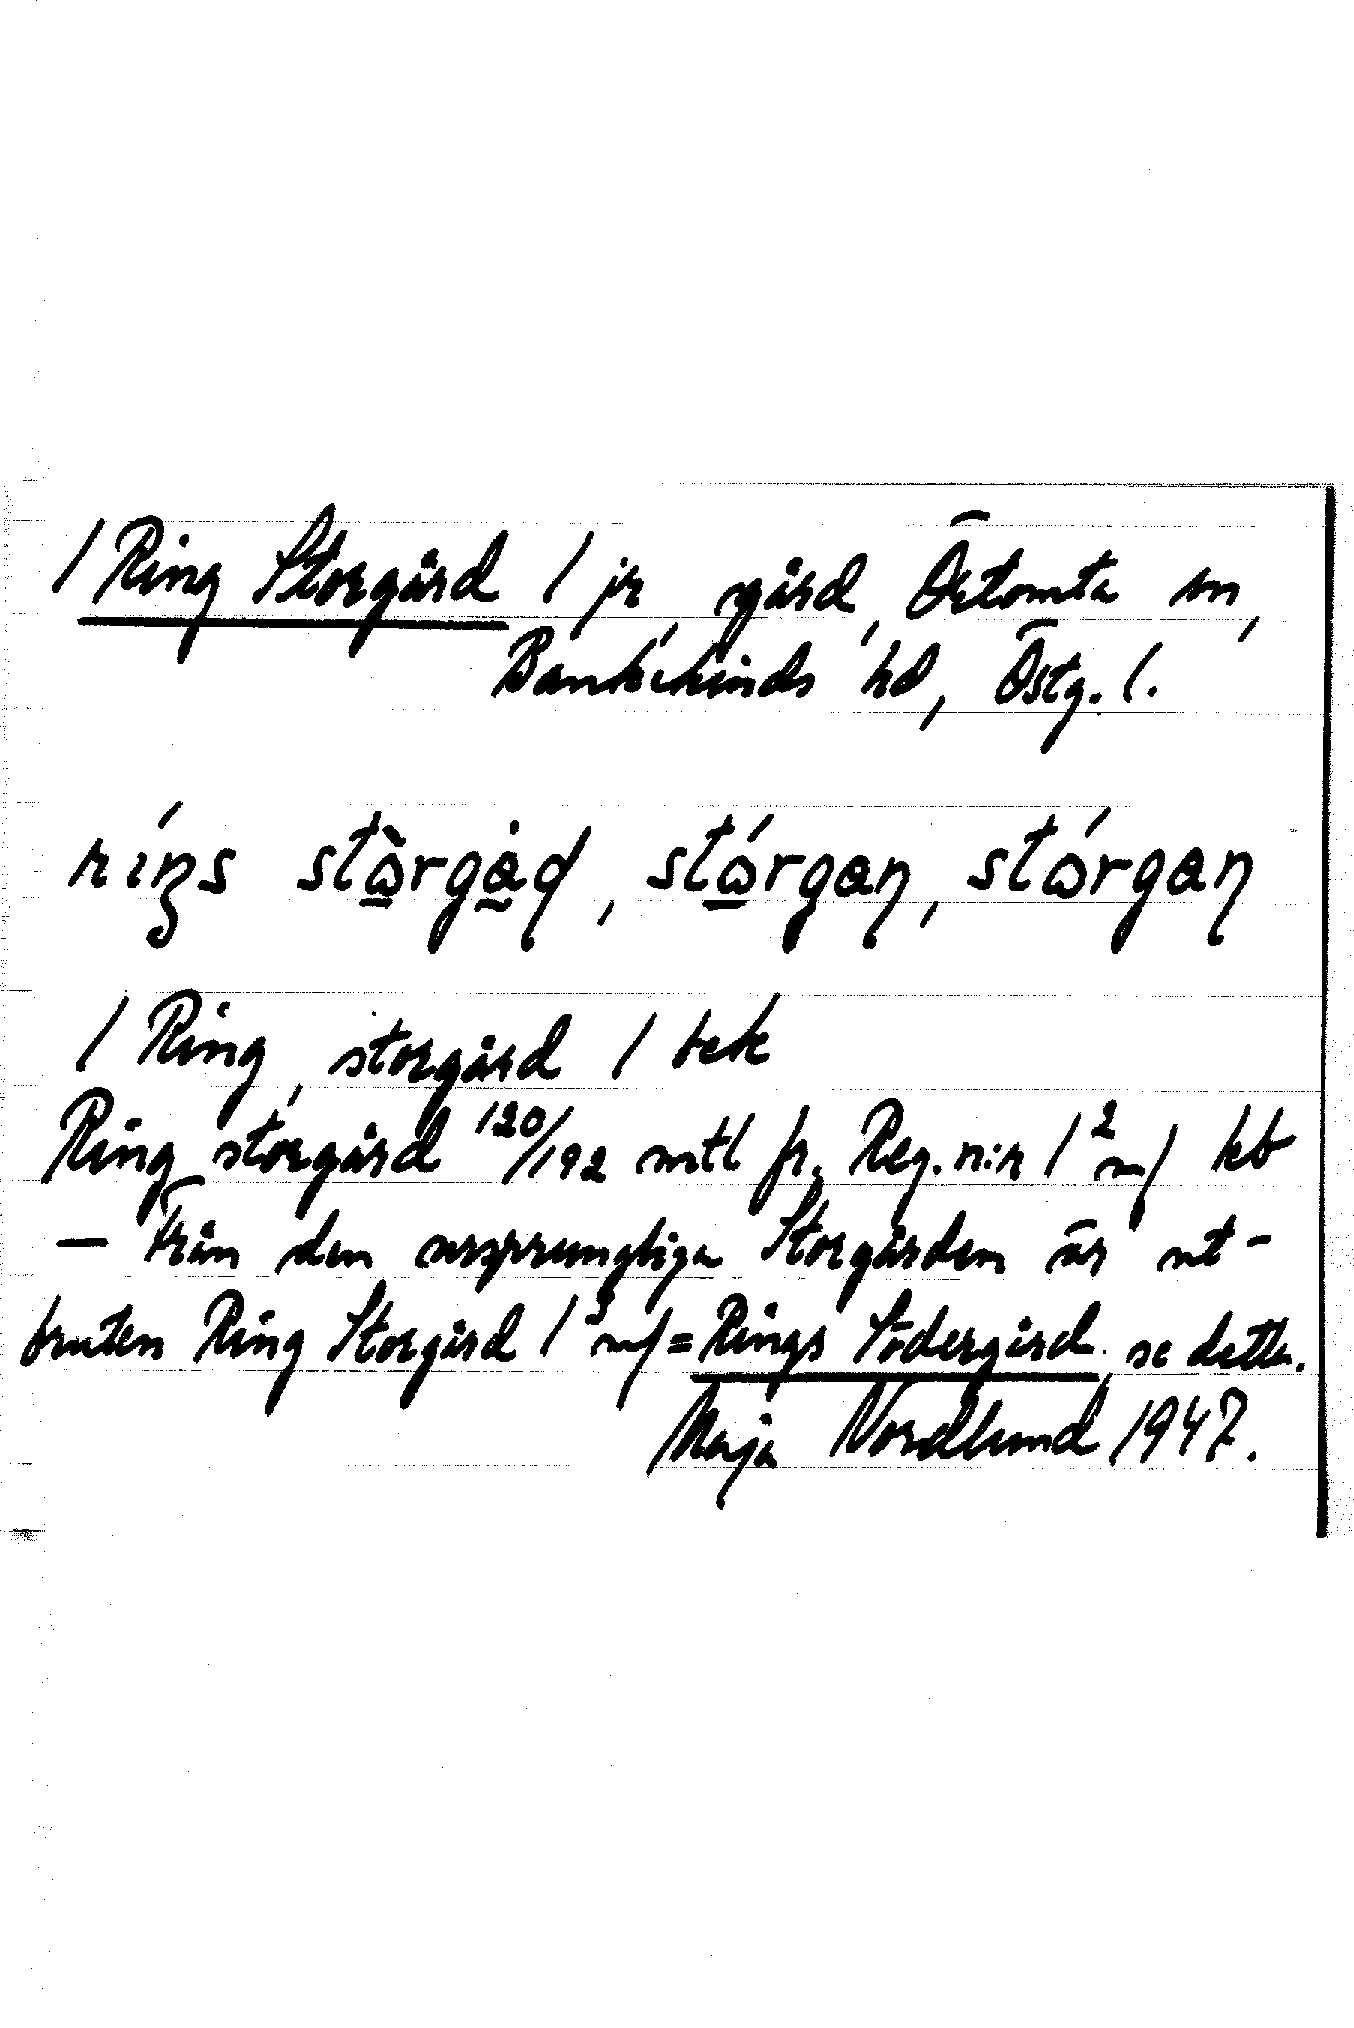 / Ring Storgård / jr, gård, Örtomta sn,
Bankekinds hd, Östg. l.
ríŋs stò̱rgȧ̰d, stó̱rgaɲ, stórgaɲ
/ Ring, storgård / bek
Ring storgård 120/192 mtl fr. Reg. n:r 1² m/ kb
— Från den ursprungliga Storgården är ut-
bruten Ring Storgård 1³ m/ = Rings Södergård, se detta.
Maja Nordlund 1947.